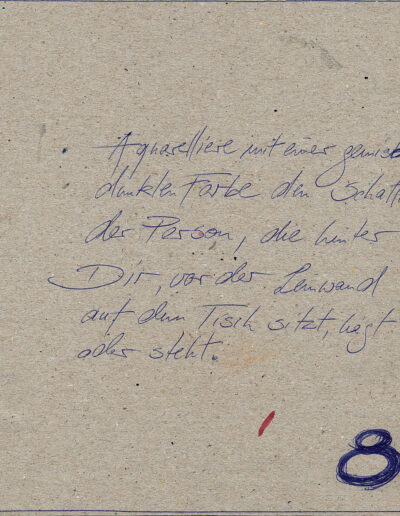 Aquarelliere mit einer gemisc
dunklen Farbe den Schatt
der Person, die hinter
Dir, vor der Leinwand
auf dem Tisch sitzt, liegt
oder steht.
8